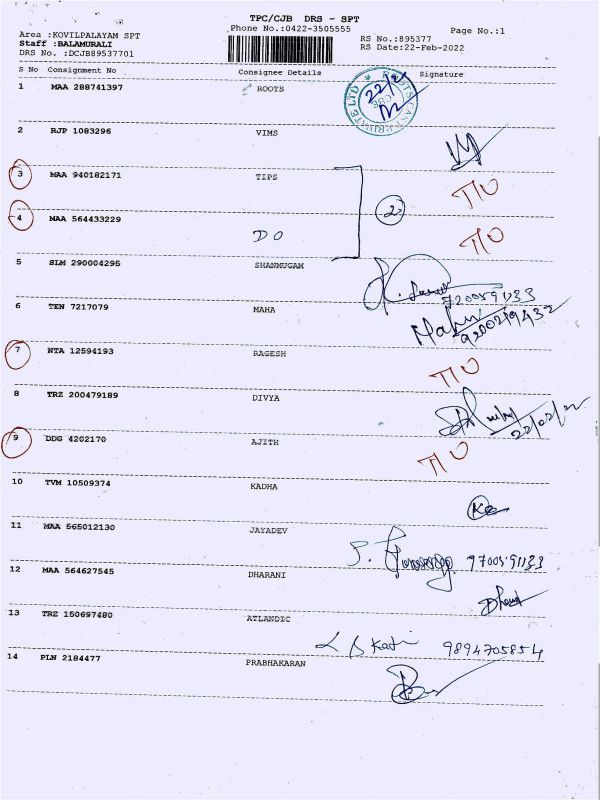 TPC/CJB DRS - SPT
Phone No.:0422-3505555
Page No.:1
Area :KOVILPALAYAM SPT
RS No.:895377
Staff :BALAMURALI
RS Date:22-Feb-2022
DRS No. :DCJB89537701
S No Consignment No Consignee Details Signature
1 MAA 288741397 ROOTS
22/2
ROOTS CAST PRIVATE LTD
CBE
2 RJP 1083296 VIMS
3 MAA 940182171 TIPS
2
4 MAA 564433229 DO
5 SLM 290004295 SHANMUGAM
6 TEN 7217079 MAHA
7 NTA 12594193 RAGESH
8 TRZ 200479189 DIVYA
22/02/22
9 DDG 4202170 AJITH
10 TVM 10509374 KADHA
11 MAA 565012130 JAYADEV
12 MAA 564627545 DHARANI
13 TRZ 150697480 ATLANDIC
9894705854
14 PLN 2184477 PRABHAKARAN